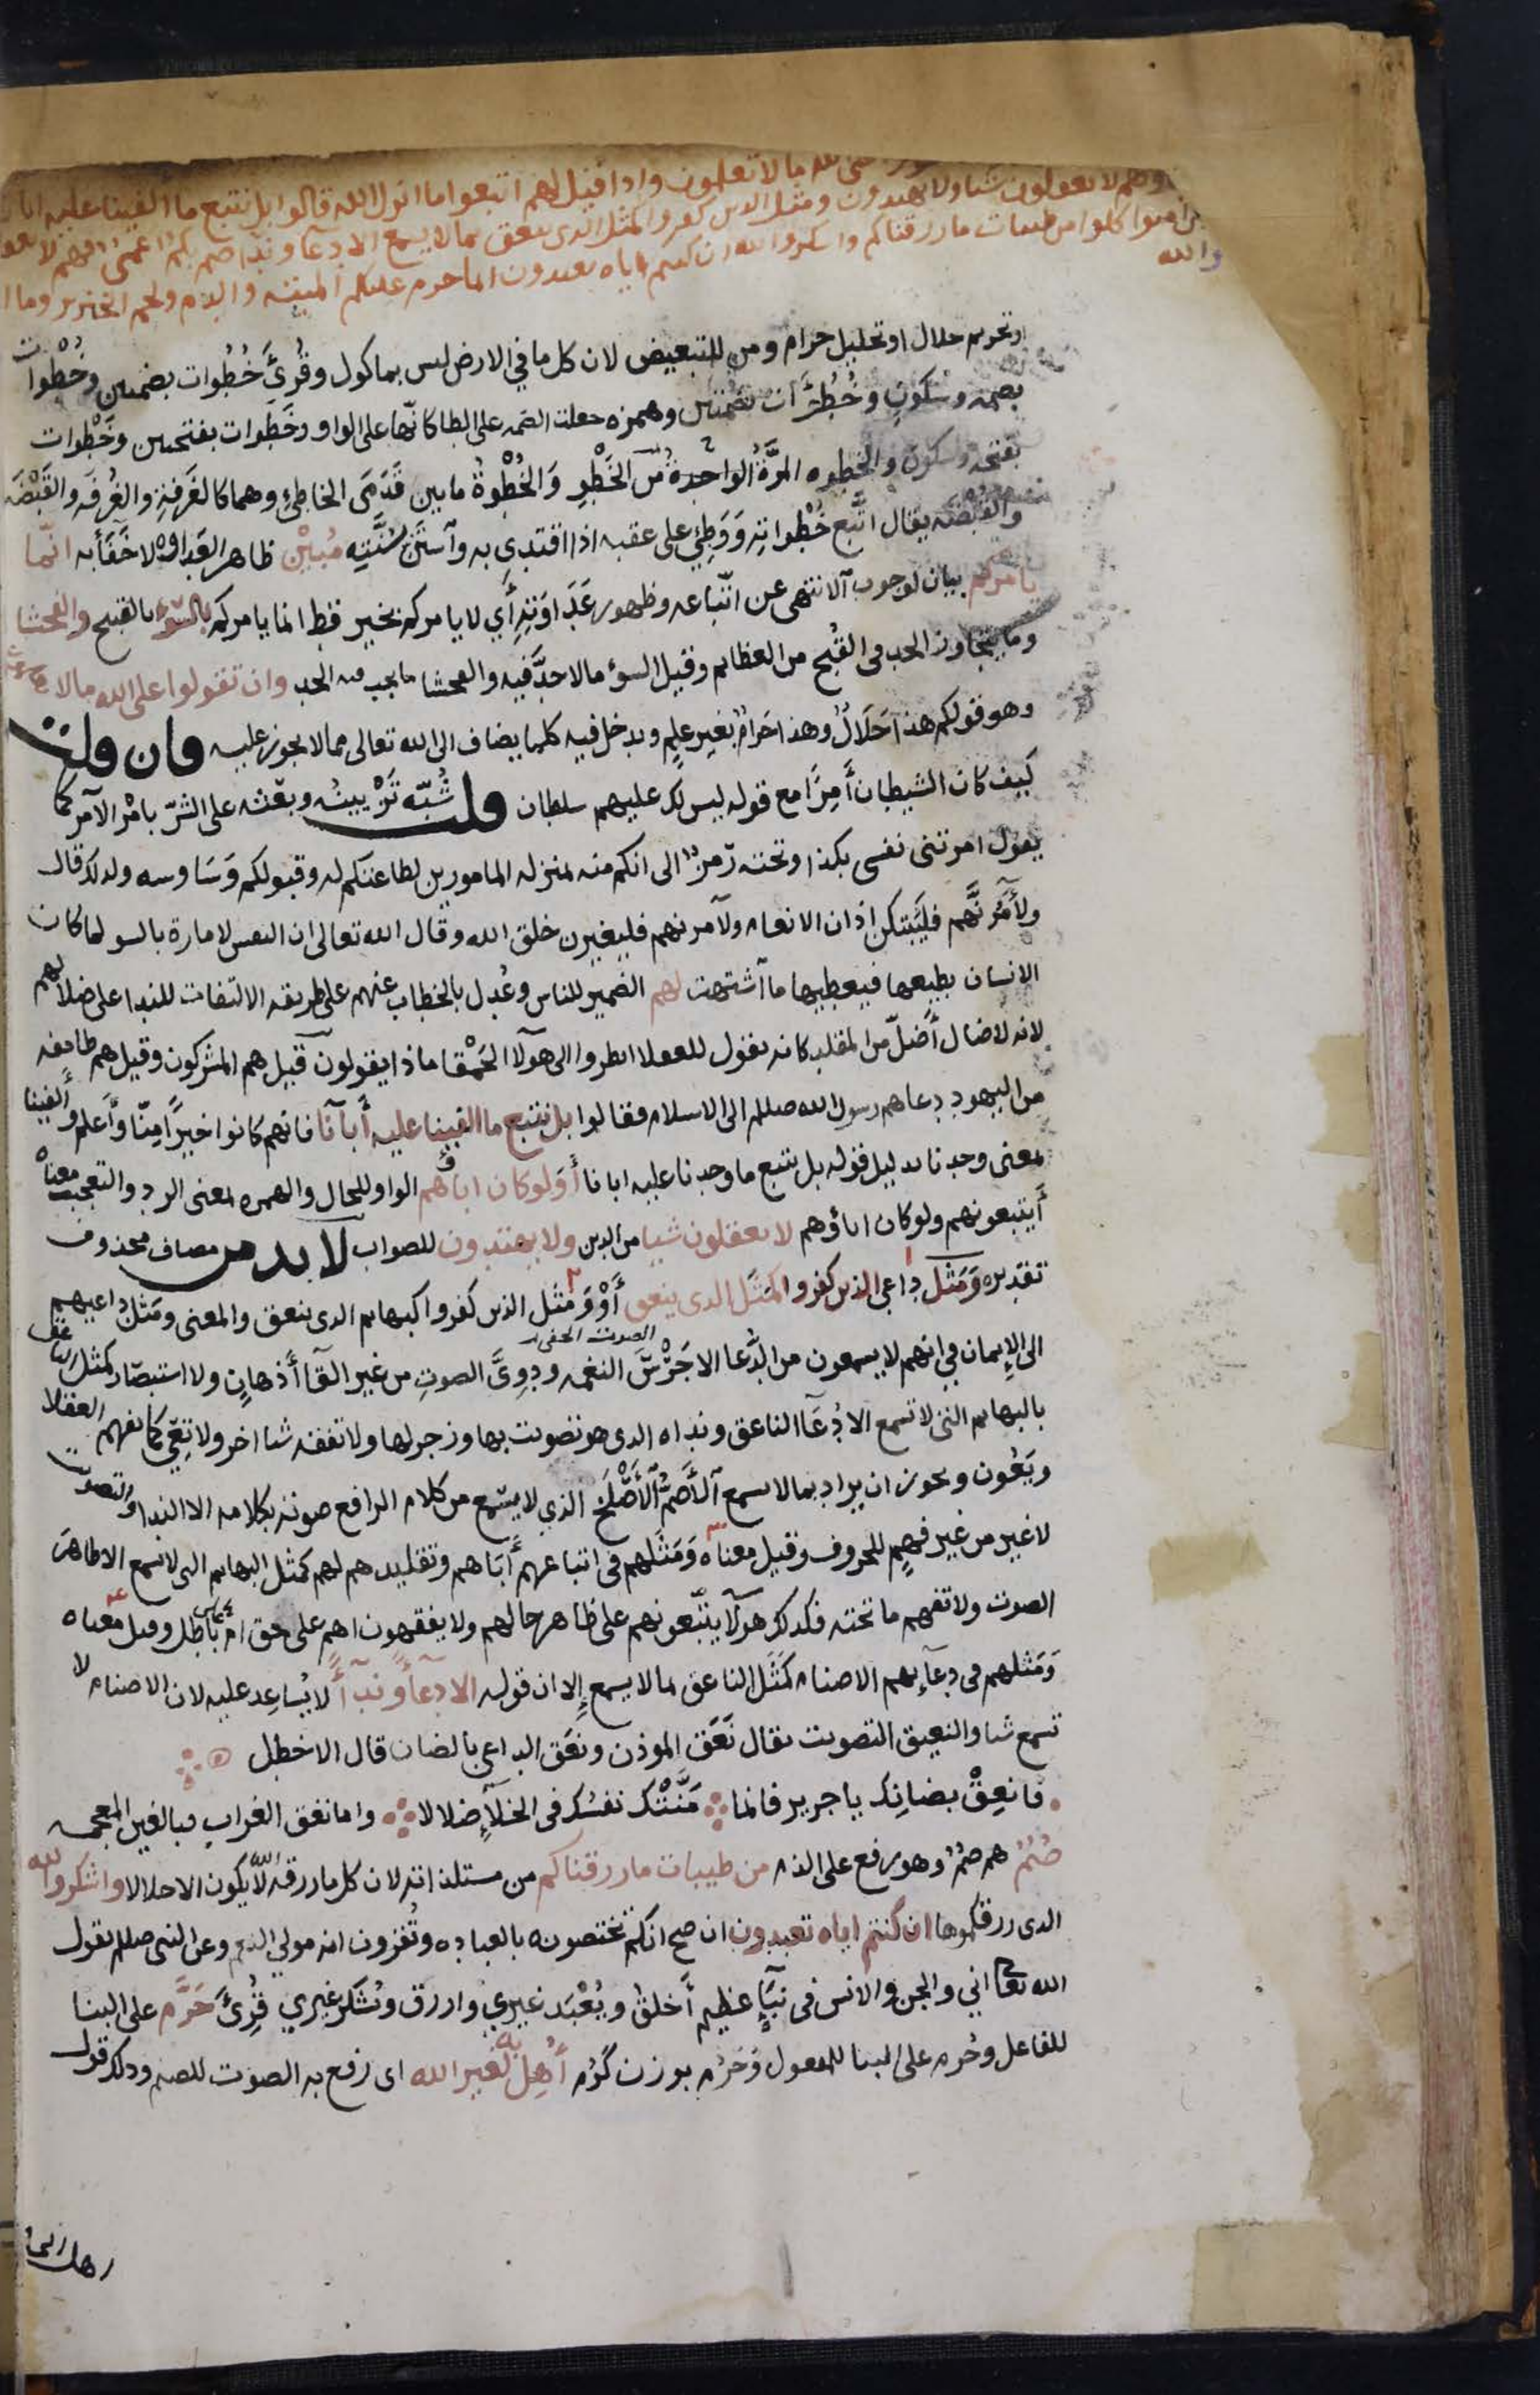 على الله ما لا تعلمون واذا قيل لهم اتبعوا ما انزل الله قالوا بل نتبع ما الفينا عليه ابانا
وهم لا يعقلون شيا ولا يهتدون ومثل الذين كفروا كمثل الذي ينعق بما لا يسمع الا دعا وندا صم بكم عمي فهم لا يعقلون
امنوا كلوا من طيبات ما رزقناكم واشكروا لله ان كنتم اياه تعبدون انما حرم عليكم الميتة والدم ولحم الخنزير وما ا
والله
او تحريم حلال او تحليل حرام ومن للتبعيض لان كل ما في الارض ليس بماكول وقُرِئَ خُطُوات بضمتين وخُطْوات
بضمة وسكونٍ وخُطُؤَات بضمتين وهمزه جعلت الضمه على الطا كانّها على الواو وخَطَوات بفتحتين وخَطْوات
بفتحة وسكون والخَطوه المرَّةُ الواحدةُ من الخَطْوِ وَالخُطْوةُ ما بين قَدَمَى الخاطِئِ وهما كالغَرفةِ والغُرفَه والقَبْضَه
والقُبْضَه يقال اتَّبع خُطُواتِهِ وَوَطِئ على عقبه اذا اقتدى به وآستَنَّ بسُنَّتِه مُبين ظاهر العَداوة لا خَفَآءَ به انّما
يامركم بيان لوجوب آلانتهى عن اتّباعه وظهور عَدَاوَتِهِ أَي لا يامركم بخير قط انما يامركم بالسّوءِ بالقبيح والفحشا
وما يتجاوز الحد في القُبْح من العظايم وقيل السوء ما لا حدَّ فيه والفحشا ما يجب فيه الحد وان تقولوا على الله ما لا تعلمون
وهو قولكم هذا حَلَالٌ وهذا حَرامٌ بغير علمٍ ويدخل فيه كلما يضاف الى الله تعالى مما لا يجوز عليه فان قلت
كيف كان الشيطان أَمِرًا مع قوله ليس لك عليهم سلطان قلت شُبّه تَزْيينُه وبعثه على الشرّ بامْر الآمر كما
يقول امرتنى نفسى بكذا وتحته رَمزٌ الى انكم منه بمنزله المامورين لطاعتكم له وقبولكم وَسَاوسه ولذلك قال
ولأَمُرَنَّهم فليُبَتِكن اذان الانعام ولآمرنهم فليغيرن خلق الله وقال الله تعالى ان النفس لامارة بالسو لما كان
الانسان يطيعها فيعطيها ما آشتهت لهم الضمير للناس وعُدِل بالخطاب عنهم على طريقه الالتفات للندا على ضلالهم
لانه لا ضال أَضلّ من المقلد كانه يقول للعقلا انظروا الى هولآ الحَمْقا ماذا يقولون قيل هم المشركون وقيل هم طايفه
من اليهود دعاهم رسول الله صلى الى الاسلام فقالوا بل نتبع ما الفينا عليه أَبآنا فانهم كانوا خيرًا مِنّا وأَعلم وأَلفينا
بمعنى وجدنا بدليل قوله بل نتبع ما وجدنا عليه ابانا أَوَلوكان اباؤهم الواو للحال والهمزه بمعنى الرد والتعجب معناه
أَيتبعونهم ولو كان اباؤهم لا يعقلون شيا من الدين ولا يهتدون للصواب لا بد من مضاف محذوف
تقديره وَمَثَل داعى الذين كفروا كمَثَل الذى ينعق أَوْ وَمَثل الذين كفروا كبهايم الذى ينعق والمعنى ومَثل داعيهم
الصوت الخفى
الى الإيمان في انهم لا يسمعون من الدُّعا الا جَرْسَ النغمه ودوِىَّ الصوتِ من غير القآ أَذهانٍ ولا استبصار كمثل الناعق
بالبهايم التى لا تسمع الا دُعَآ الناعق ونداه الذى هو تصويت بها وزجر لها ولا تفقه شيا اخر ولا تعِي كما يفهم العقلا
ويَعُون ويجوز ان يراد بما لا يسمع آلأَصَمُّ آلأَصْلَخ الذي لا يسْمع من كلام الرافع صوته بكلامه الا الندا والتصويت
لا غير من غير فهمٍ للحروف وقيل معناه وَمَثَلهم فى اتباعهم أَبَاهم وتقليدهم لهم كمثل البهايم التى لا تسمع الا ظاهر
الصوت ولا تفهم ما تحته فكذلك هولآ يتّبعونهم على ظاهر حالهم ولا يفقهون اهم على حق ام باطل وقيل معناه
وَمَثلهم فى دعآيهم الاصنام كَمَثَل الناعق بما لا يسمع إلا ان قوله الا دعآءً وندآءً لا يُساعِد عليه لان الاصنام لا
تسمع شيا والنعيق التصويت يقال نَعَق الموذن ونعَق الراعي بالضان قال الاخطل
فانعِقْ بضانِك يا جرير فانما مَنَّتْك نفسُك فى الخلآءِ ضلالا واما نغق الغراب فبالغين المعجمه
صُمٌّ هم صُمٌّ وهو رفع على الذم من طيبات ما رزقناكم من مستلذاته لان كل ما رزقه اللّه لا يكون الا حلالا واشكروا لله
الذى رزقكموها ان كنتم اياه تعبدون ان صح انكم تختصونه بالعباده وتُقرون انه مولى النعم وعن النبى صلى يقول
الله تعالى اني والجن والانس فى نبَاءٍ عظيم أَخلق ويُعْبَد غيري وارزق ويُشكر غيري قُرِئَ حَرَّم على البنا
للفاعل وحُرم على البنا للمفعول وَحَرُم بوزن كرُم أُهِلَّ به لغير الله اى رفع به الصوت للصنم وذلك قول
اهل الجا